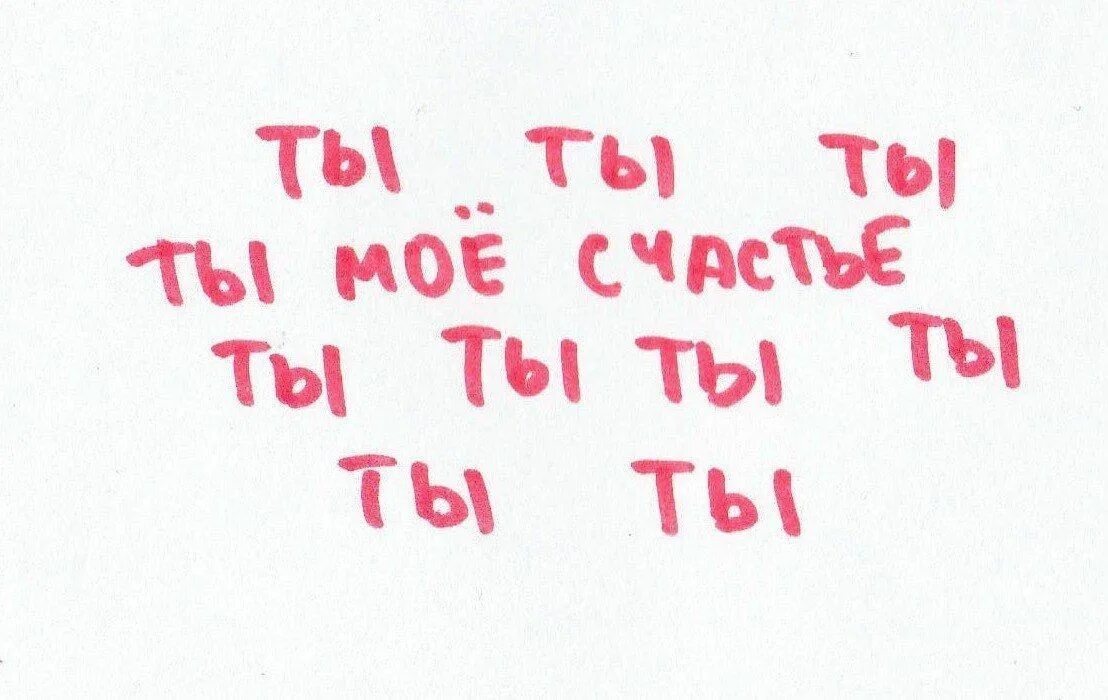 ты ты ты
ты моё счастье
ты ты ты ты
ты ты